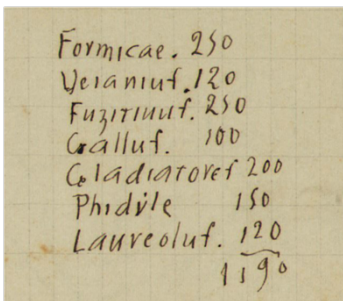 Formicae. 250
Veianius. 120
Fugitivus. 250
Gallus. 100
Gladiatores 200
Phidyle 150
Laureolus. 120
1190